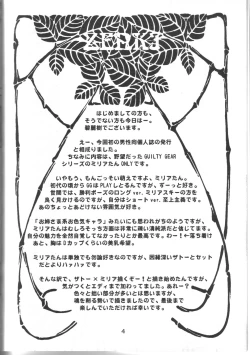 はじめましての方も、
そうでない方も今日はー。
碧麗樹でございます。
えー、今回初の男性向個人誌の発行
と相成りました。
ちなみに内容は、野望だった GUILTY GEAR
シリーズのミリアたん ONLYです。
いやもう、もんごっそい萌えですよ、ミリアたん。
初代の頃から GGは PLAY しとるんですが、ずーっと好き。
世間では、勝利ポーズのロング ver. ミリアスキーの方を
良く見かけるのですが、自分はショート ver. 至上主義です。
あのちょっとあどけない雰囲気が好き。
「お姉さま系お色気キャラ」みたいにも思われがちのようですが、
ミリアたんはむしろそっち方面は非常に疎い清純派だと信じてます。
自分の魅力を全然自覚してなかったりとか最高です。わーい落ち着け
あと、胸はDカップくらいの美乳希望。
ミリアたんは単体でも勿論好きなのですが、因縁深いザトーとセット
だとよりハァハァです。
そんな訳で、ザトー×ミリア描くぞー！と描き始めたんですが、
気がつくとエディまで加わってました。あれー？
色々と拙い部分が多いとは思いますが、
魂を削る勢いで描きましたので、最後まで
楽しんでいただければ幸いです。
4